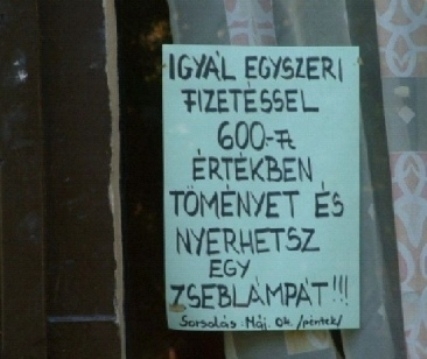 IGYÁL EGYSZERI
FIZETÉSSEL
600.-Ft
ÉRTÉKBEN
TÖMÉNYET ÉS
NYERHETSZ
EGY
ZSEBLÁMPÁT!!!
Sorsolás Máj. 04. /péntek/